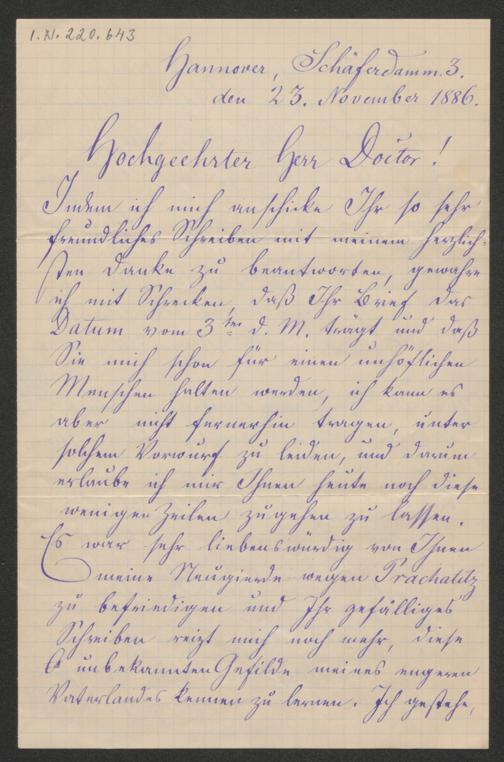 I.N. 220.643
Hannover, Schäferdamm. 3.
den 23. November 1886.
Hochgeehrter Herr Doctor!
Indem ich mich anschicke Ihr so sehr
freundliches Schreiben mit meinem herzlich-
sten Danke zu beantworten, gewahre
ich mit Schrecken, daß Ihr Brief das
Datum vom 3ten d. M. trägt und daß
Sie mich schon für einen unhöflichen
Menschen halten werden, ich kann es
aber nicht fernerhin tragen, unter
solchem Vorwurf zu leiden, und darum
erlaube ich mir Ihnen heute noch diese
wenigen Zeilen zugehen zu lassen.
Es war sehr liebenswürdig von Ihnen
meine Neugierde wegen Prachatitz
zu befriedigen und Ihr gefälliges
Schreiben reizt mich noch mehr, diese
unbekannten Gefilde meines engeren
Vaterlandes kennen zu lernen. Ich gestehe,